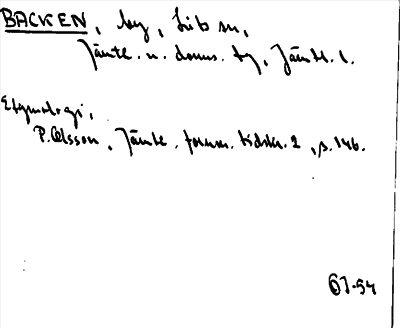 BACKEN, by, Lits sn,
Jämtl. n. doms. tg, Jämtl. l.
Etymologi,
P. Olsson, Jämtl. fornm. tidskr. 2, s. 146.
61-54